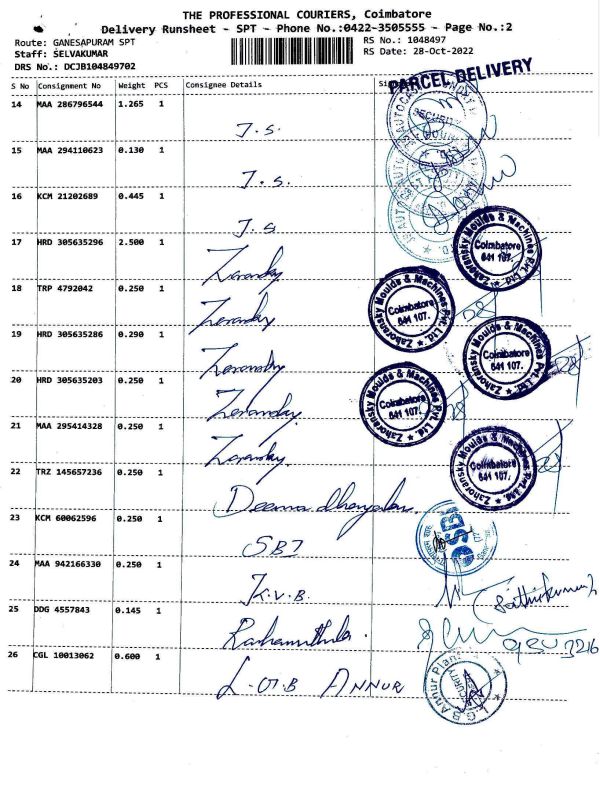 THE PROFESSIONAL COURIERS, Coimbatore
Delivery Runsheet - SPT - Phone No.:0422-3505555 - Page No.:2
Route: GANESAPURAM SPT
RS No.: 1048497
Staff: SELVAKUMAR
RS Date: 28-Oct-2022
DRS No.: DCJB104849702
PARCEL DELIVERY
S No Consignment No Weight PCS Consignee Details
14 MAA 286796544 1.265 1
J.S.
15 MAA 294110623 0.130 1
J.S.
16 KCM 21202689 0.445 1
J.S
17 HRD 305635296 2.500 1
Zahoransky Moulds & Machines Pvt. Ltd.
Coimbatore
641 107.
18 TRP 4792042 0.250 1
Zahoransky Moulds & Machines Pvt. Ltd.
Coimbatore
641 107.
19 HRD 305635286 0.290 1
Zahoransky Moulds & Machines Pvt. Ltd.
Coimbatore
641 107.
20 HRD 305635203 0.250 1
Zahoransky Moulds & Machines Pvt. Ltd.
Coimbatore
641 107.
21 MAA 295414328 0.250 1
Zahoransky Moulds & Machines Pvt. Ltd.
Coimbatore
641 107.
22 TRZ 145657236 0.250 1
23 KCM 60062596 0.250 1
SBI
SBI
24 MAA 942166330 0.250 1
K.V.B.
25 DDG 4557843 0.145 1
26 CGL 10013062 0.600 1
L.G.B ANNUR
L.G.B Annur Plant
SECURITY